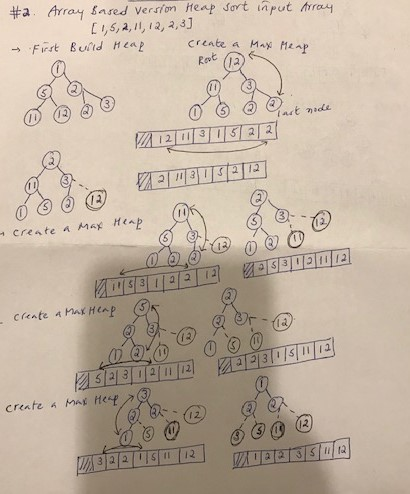 #2. Array Based Version Heap Sort input Array
[1,5,2,11,12,2,3]
→ First Build Heap
Create a Max Heap
1
5 2
11 12 2 3
Root 12
11 3
1 5 2 2
last node
12 11 3 1 5 2 2
2 11 3 1 5 2 12
2
11 3
1 5 2 12
Create a Max Heap
11
5 3
1 2 2 12
11 5 3 1 2 2 12
2
5 3
1 2 11 12
2 5 3 1 2 11 12
Create a Max Heap
5
2 3
1 2 11 12
5 2 3 1 2 11 12
2
2 3
1 5 11 12
2 2 3 1 5 11 12
Create a Max Heap
3
2 2
1 5 11 12
3 2 2 1 5 11 12
1
2 2
3 5 11 12
1 2 2 3 5 11 12